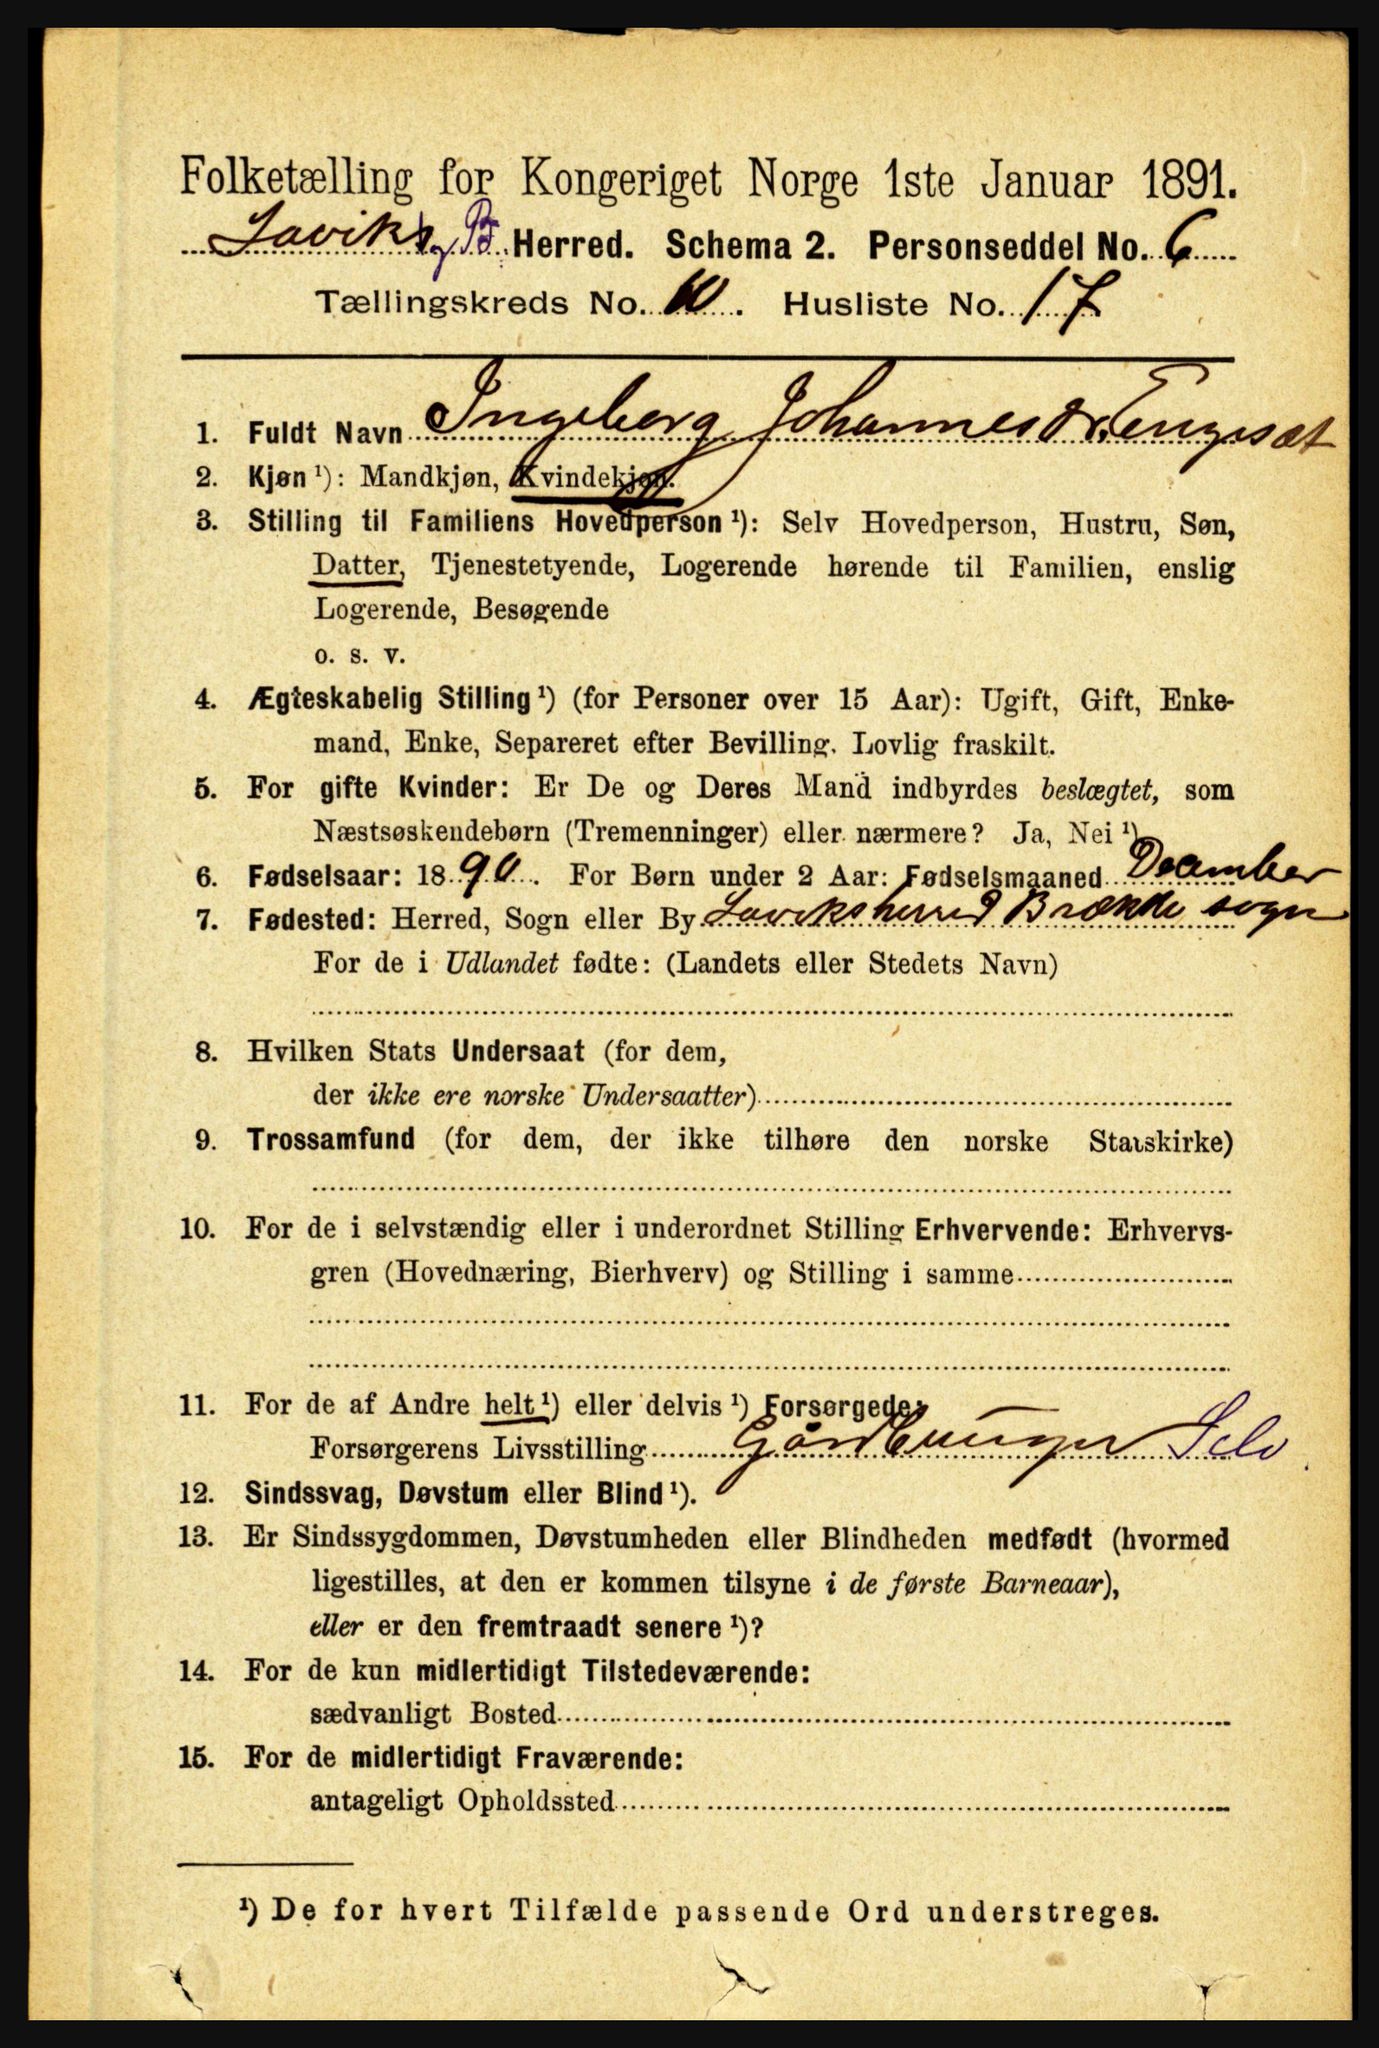 Folketælling for Kongeriget Norge 1ste Januar 1891.
Laviks og B. Herred. Schema 2. Personseddel No. 6
Tællingskreds No. 10. Husliste No. 17
1. Fuldt Navn Ingeborg Johannesdr. Engesæt
2. Kjøn ¹): Mandkjøn, Kvindekjøn.
3. Stilling til Familiens Hovedperson ¹): Selv Hovedperson, Hustru, Søn,
Datter, Tjenestetyende, Logerende hørende til Familien, enslig
Logerende, Besøgende
o. s. v.
4. Ægteskabelig Stilling ¹) (for Personer over 15 Aar): Ugift, Gift, Enke-
mand, Enke, Separeret efter Bevilling. Lovlig fraskilt.
5. For gifte Kvinder: Er De og Deres Mand indbyrdes beslægtet, som
Næstsøskendebørn (Tremenninger) eller nærmere? Ja, Nei ¹)
6. Fødselsaar: 1890. For Børn under 2 Aar: Fødselsmaaned December
7. Fødested: Herred, Sogn eller By Laviksherred Brække sogn
For de i Udlandet fødte: (Landets eller Stedets Navn)
8. Hvilken Stats Undersaat (for dem,
der ikke ere norske Undersaatter)
9. Trossamfund (for dem, der ikke tilhøre den norske Statskirke)
10. For de i selvstændig eller i underordnet Stilling Erhvervende: Erhvervs-
gren (Hovednæring, Bierhverv) og Stilling i samme
11. For de af Andre helt ¹) eller delvis ¹) Forsørgede:
Forsørgerens Livsstilling Gårdbruger Selv
12. Sindssvag, Døvstum eller Blind ¹).
13. Er Sindssygdommen, Døvstumheden eller Blindheden medfødt (hvormed
ligestilles, at den er kommen tilsyne i de første Barneaar),
eller er den fremtraadt senere ¹)?
14. For de kun midlertidigt Tilstedeværende:
sædvanligt Bosted
15. For de midlertidigt Fraværende:
antageligt Opholdssted
¹) De for hvert Tilfælde passende Ord understreges.